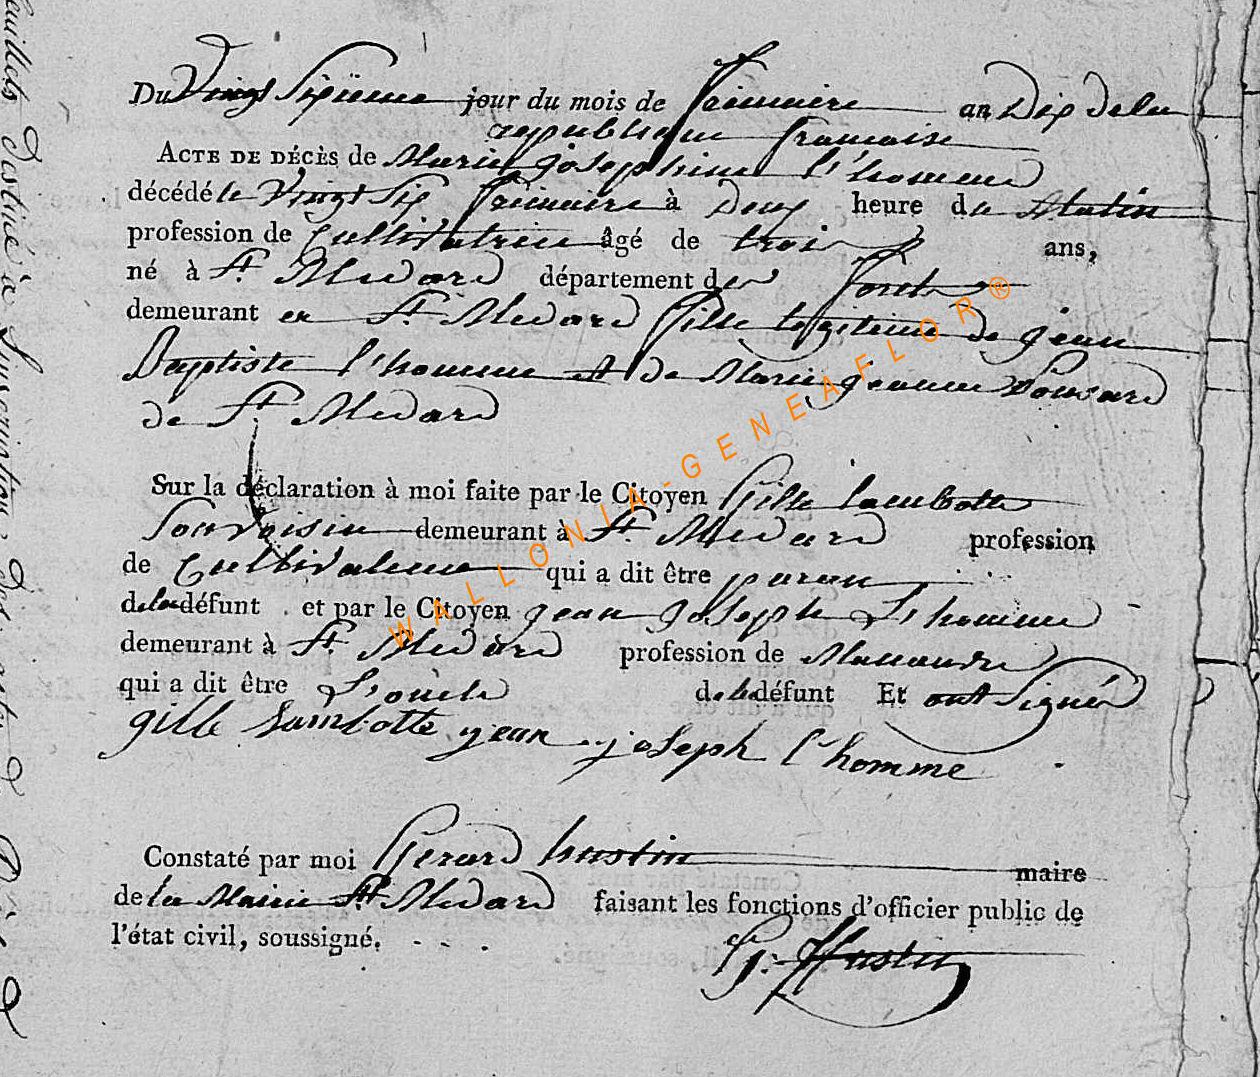 Du Vingt Sixieme jour du mois de frimaire an Dix de la
republique francaise
ACTE DE DÉCÈS de Marie josephine l'homme
décédé le Vingt Six frimaire à Deux heure du Matin
profession de Cultivatrice âgé de trois ans,
né à St Medard département des forets
demeurant en St Medard fille legitime de jean
Baptiste l'homme et de Marie jeanne
de St Medard
Sur la déclaration à moi faite par le Citoyen Gille Lambotte
Son voisin demeurant à St Medard profession
de Cultivateur qui a dit être
de la défunt et par le Citoyen jean joseph L'homme
demeurant à St Medard profession de
qui a dit être L'oncle de la défunt Et ont Signés
gille Lambotte jean joseph l'homme
Constaté par moi Gerard hustin maire
de la Mairie St Medard faisant les fonctions d'officier public de
l'état civil, soussigné.
G: Hustin
WALLONIA-GENEAFLOR®